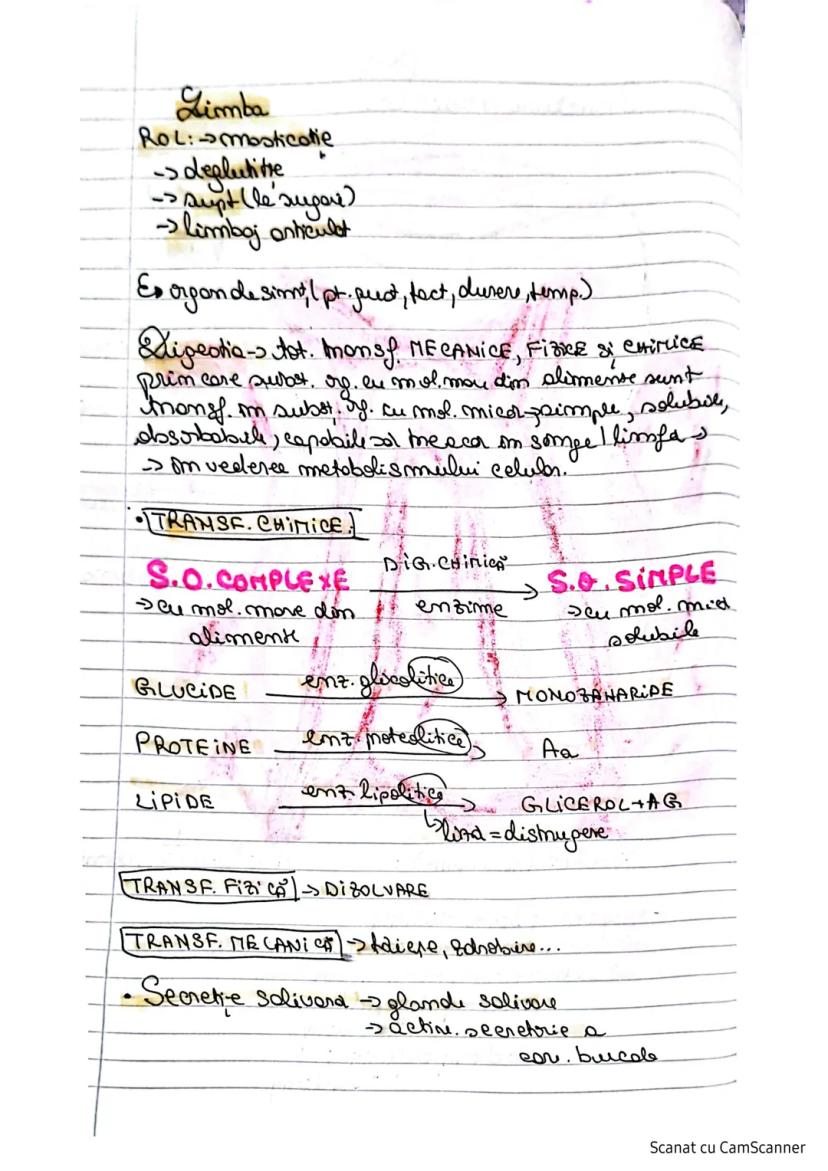 Limba
ROL: → masticație
→ deglutiție
→ supt (la sugari)
→ limbaj articulat
E → organ de simț (pt. gust, tact, durere, temp.)
Digestia → tot. transf. MECANICE, FIZICE și CHIMICE
prin care subst. og. cu mol. mari din alimente sunt
transf. în subst. og. cu mol. mici → simple, solubile,
absorbabile, capabile să treacă în sânge / limfă →
→ în vederea metabolismului celular.
• TRANSF. CHIMICE.
DIG. CHIMICĂ
S.O. COMPLEXE → S.O. SIMPLE
→ cu mol. mare din enzime → cu mol. mici
alimente solubile
GLUCIDE enz. glicolitice → MONOZAHARIDE
PROTEINE enz. proteolitice → Aa
LIPIDE enz. lipolitice → GLICEROL + AG
↳ liză = distrugere
TRANSF. FIZICĂ → DIZOLVARE
TRANSF. MECANICĂ → tăiere, zdrobire...
• Secreție salivară → glande salivare
→ activ. secretorie a
cav. bucale
Scanat cu CamScanner